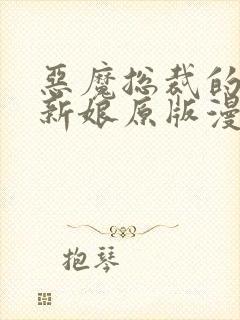 惡魔总裁的
新娘原版漫
抱琴